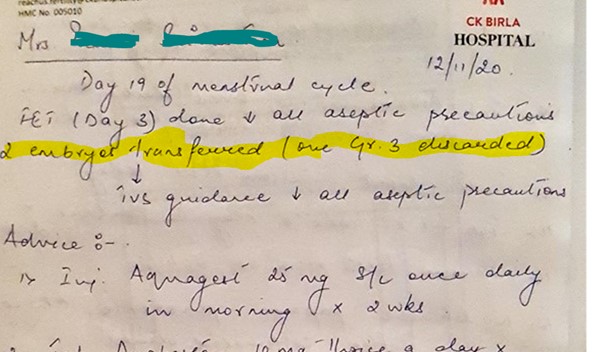 HMC No. 005010
CK BIRLA
HOSPITAL
Mrs
12/11/20.
Day 19 of menstrual cycle.
FET (Day 3) done ↓ all aseptic precautions
2 embryos transferred (one Gr. 3 discarded)
↓
ivs guidance ↓ all aseptic precautions
Advice :-
1> Inj. Aquagest 25 mg S/c once daily
in morning x 2 wks.
thrice a day x